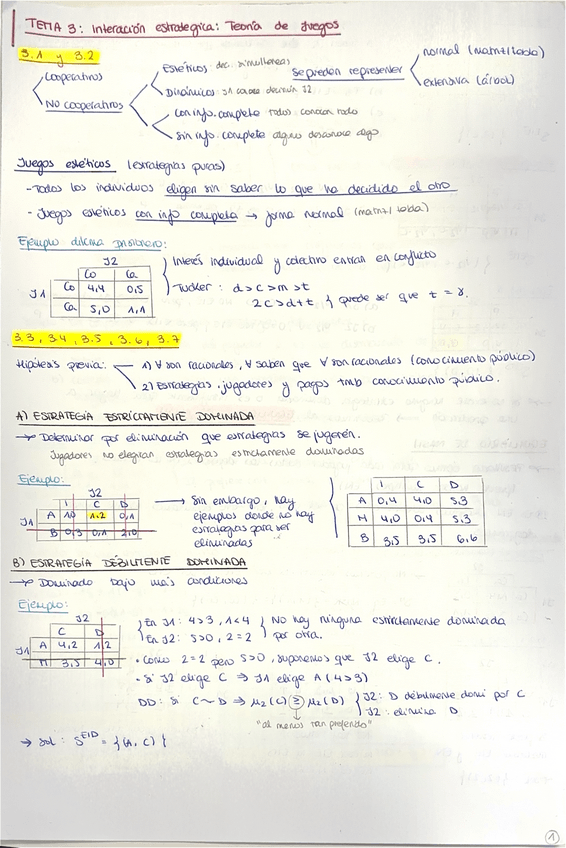 TEMA 3: Interacción estratégica: Teoría de Juegos
3.1 y 3.2
Cooperativos
NO cooperativos
Estáticos: dec. simultáneas
Dinámicos: J1 antes decisión J2
Con info. completa todos conocen todo
Sin info. completa alguno desconoce algo
se pueden representar
normal (matriz/tabla)
extensiva (árbol)
Juegos estáticos (estrategias puras)
- Todos los individuos eligen sin saber lo que ha decidido el otro
- Juegos estáticos con info completa → forma normal (matriz/tabla)
Ejemplo dilema prisionero:
J2
Co Ca
J1 Co 4,4 0,5
Ca 5,0 1,1
Interés individual y colectivo entran en conflicto
Tucker: d>c>m>t
2c>d+t } puede ser que t = 0.
3.3, 3.4, 3.5, 3.6, 3.7
Hipótesis previa:
1) ∀ son racionales, ∀ saben que ∀ son racionales (conocimiento público)
2) Estrategias, jugadores y pagos tmb conocimiento público.
A) ESTRATEGIA ESTRICTAMENTE DOMINADA
→ Determinar por eliminación que estrategias se jugarán.
Jugadores no elegirán estrategias estrictamente dominadas
Ejemplo:
J2
I C D
J1 A 1,0 1,2 0,1
B 0,3 0,1 2,0
→ Sin embargo, hay
ejemplos donde no hay
estrategias para ser
eliminadas
I C D
A 0,4 4,0 5,3
M 4,0 0,4 5,3
B 3,5 3,5 6,6
B) ESTRATEGIA DÉBILMENTE DOMINADA
→ Dominado bajo más condiciones
Ejemplo:
J2
C D
J1 A 4,2 1,2
M 3,5 4,0
En J1: 4>3, 1<4
En J2: 5>0, 2=2
No hay ninguna estrictamente dominada
por otra.
• Como 2=2 pero 5>0, suponemos que J2 elige C.
• Si J2 elige C ⇒ J1 elige A (4>3)
DD: Si C ~ D ⇒ μ₂(C) ≥ μ₂(D)
J2: D débilmente domi por C
J2: elimina D
"al menos tan preferido"
→ Sol: S^EID = {(A, C)}
1